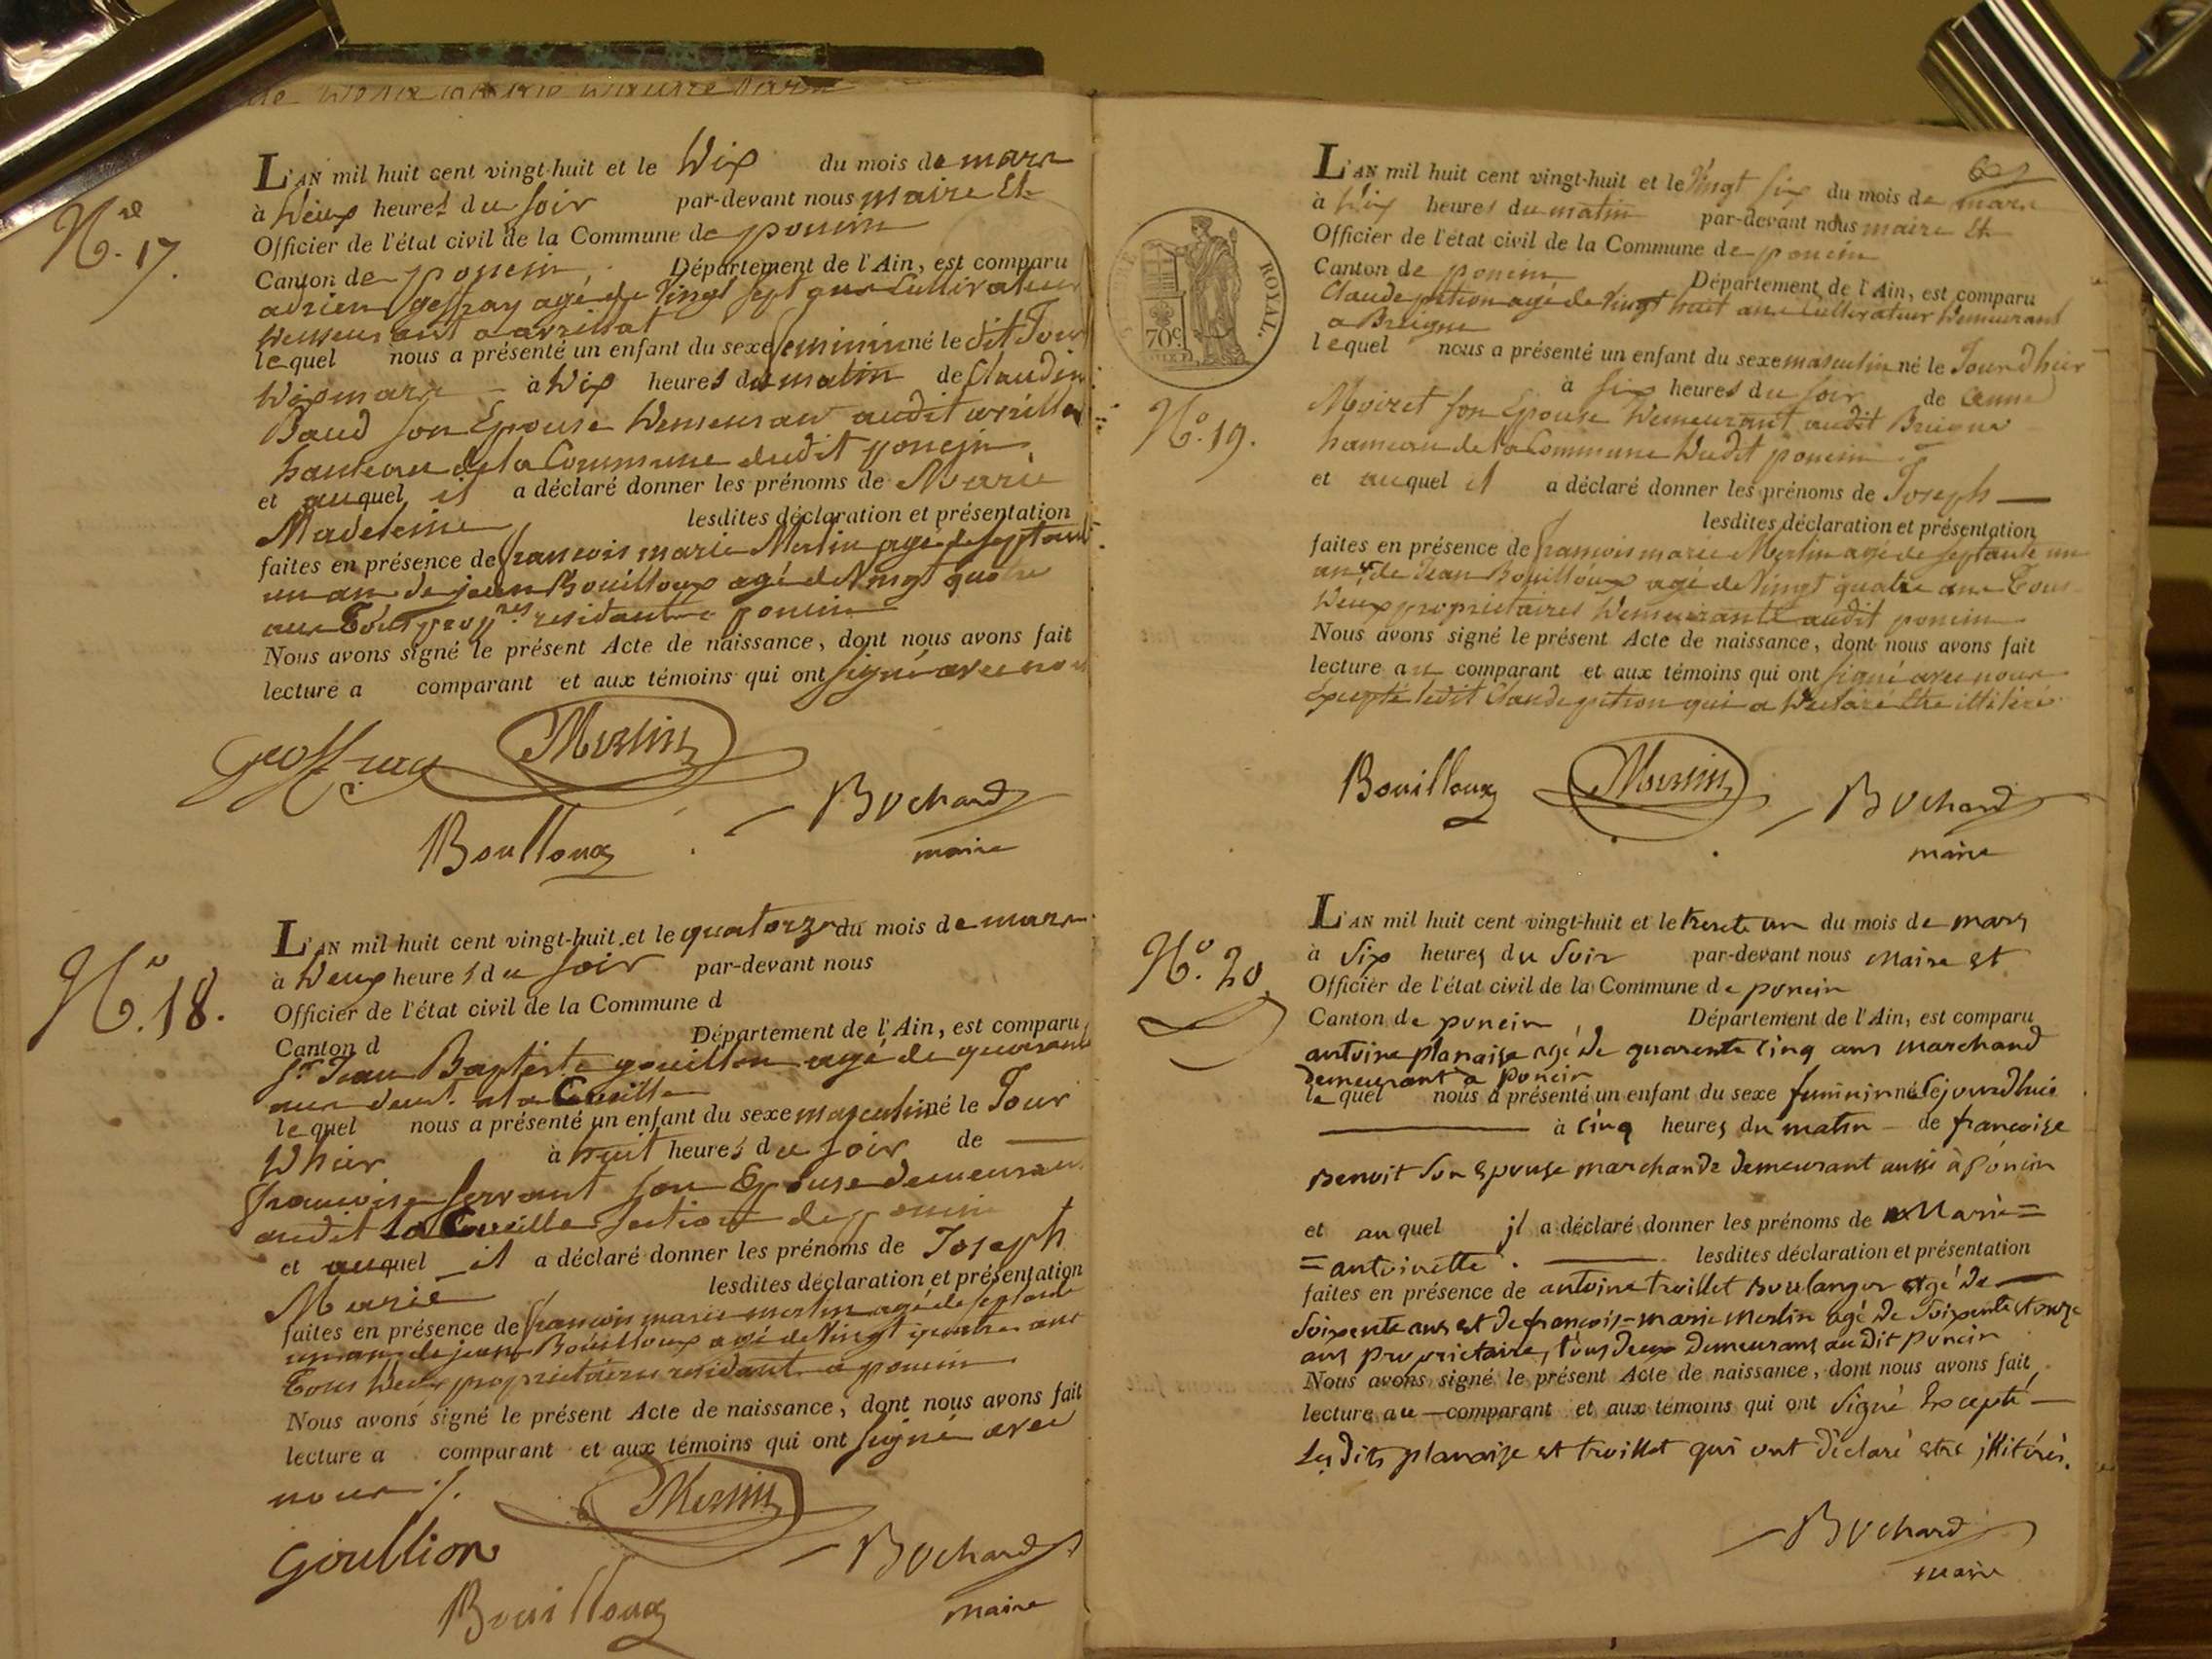 N.º 17.
L'AN mil huit cent vingt-huit et le Dix du mois de mars
à Deux heures du soir par-devant nous maire et
Officier de l'état civil de la Commune de poncin
Canton de poncin, Département de l'Ain, est comparu
adrien geffray agé de Vingt sept ans Cultivateur
Demeurant a avrillat
lequel nous a présenté un enfant du sexe feminin né le dit Jour
Dix mars à Dix heures du matin de Claudine
Baud son Epouse Demeurant audit avrillat
hameau de la Commune dudit poncin
et auquel il a déclaré donner les prénoms de Marie
Madeleine lesdites déclaration et présentation
faites en présence de francois marie Merlin agé de septante
un ans de jean Bouilloux agé de Vingt quatre
ans Tous prop.res residants a poncin
Nous avons signé le présent Acte de naissance, dont nous avons fait
lecture a comparant et aux témoins qui ont signé avec nous
Geoffray Merlin
Bouilloux Bochard
maire
N.º 18.
L'AN mil huit cent vingt-huit et le quatorze du mois de mars
à Deux heures du soir par-devant nous
Officier de l'état civil de la Commune d
Canton d Département de l'Ain, est comparu
Sr. Jean Baptiste gouillon agé de quarante
ans demt. a la Cueille
lequel nous a présenté un enfant du sexe masculin né le Jour
D'hier à huit heures du soir de
francoise servant son Epouse demeurant
audit la Cueille section de poncin
et auquel il a déclaré donner les prénoms de Joseph
Marie lesdites déclaration et présentation
faites en présence de francois marie merlin agé de septante
un ans de jean Bouilloux agé de Vingt quatre ans
Tous Deux proprietaires residants a poncin
Nous avons signé le présent Acte de naissance, dont nous avons fait
lecture a comparant et aux témoins qui ont signé avec
nous ./. Merlin
Goullion Bochard
Bouilloux maire
ROYAL.
70c.
N.º 19.
L'AN mil huit cent vingt-huit et le Vingt six du mois de mars
à Dix heures du matin par-devant nous maire et
Officier de l'état civil de la Commune de poncin
Canton de poncin Département de l'Ain, est comparu
Claude pition agé de Vingt huit ans Cultivateur Demeurant
a Breigne
lequel nous a présenté un enfant du sexe masculin né le Jour d'hier
à six heures du soir de anne
Moiret son Epouse Demeurant audit Breigne
hameau de la Commune Dudit poncin
et auquel il a déclaré donner les prénoms de Joseph
lesdites déclaration et présentation
faites en présence de francois marie Merlin agé de septante un
ans & de Jean Bouilloux agé de Vingt quatre ans Tous
Deux proprietaires Demeurants audit poncin
Nous avons signé le présent Acte de naissance, dont nous avons fait
lecture au comparant et aux témoins qui ont signé avec nous
Excepté ledit Claude pition qui a Declaré Etre illitéré
Bouilloux Merlin Bochard
maire
N.º 20.
L'AN mil huit cent vingt-huit et le trente un du mois de mars
à Six heures du Soir par-devant nous maire et
Officier de l'état civil de la Commune de poncin
Canton de poncin Département de l'Ain, est comparu
antoine planaise agé de quarente Cinq ans marchand
demeurant à poncin
lequel nous a présenté un enfant du sexe feminin né cejourd'huis
à Cinq heures du matin de francoise
Benoit Son Epouse marchande demeurant aussi à poncin
et auquel jl a déclaré donner les prénoms de Marie =
= antoinette. lesdites déclaration et présentation
faites en présence de antoine troillet Boulanger agé de
Soixente ans et de francois-marie Merlin agé de Soixente et onze
ans proprietaire, tous deux demeurans au dit poncin
Nous avons signé le présent Acte de naissance, dont nous avons fait
lecture au comparant et aux témoins qui ont Signé Excepté
Les dits planaise et troillet qui ont déclaré etre jllitérés.
Bochard
maire